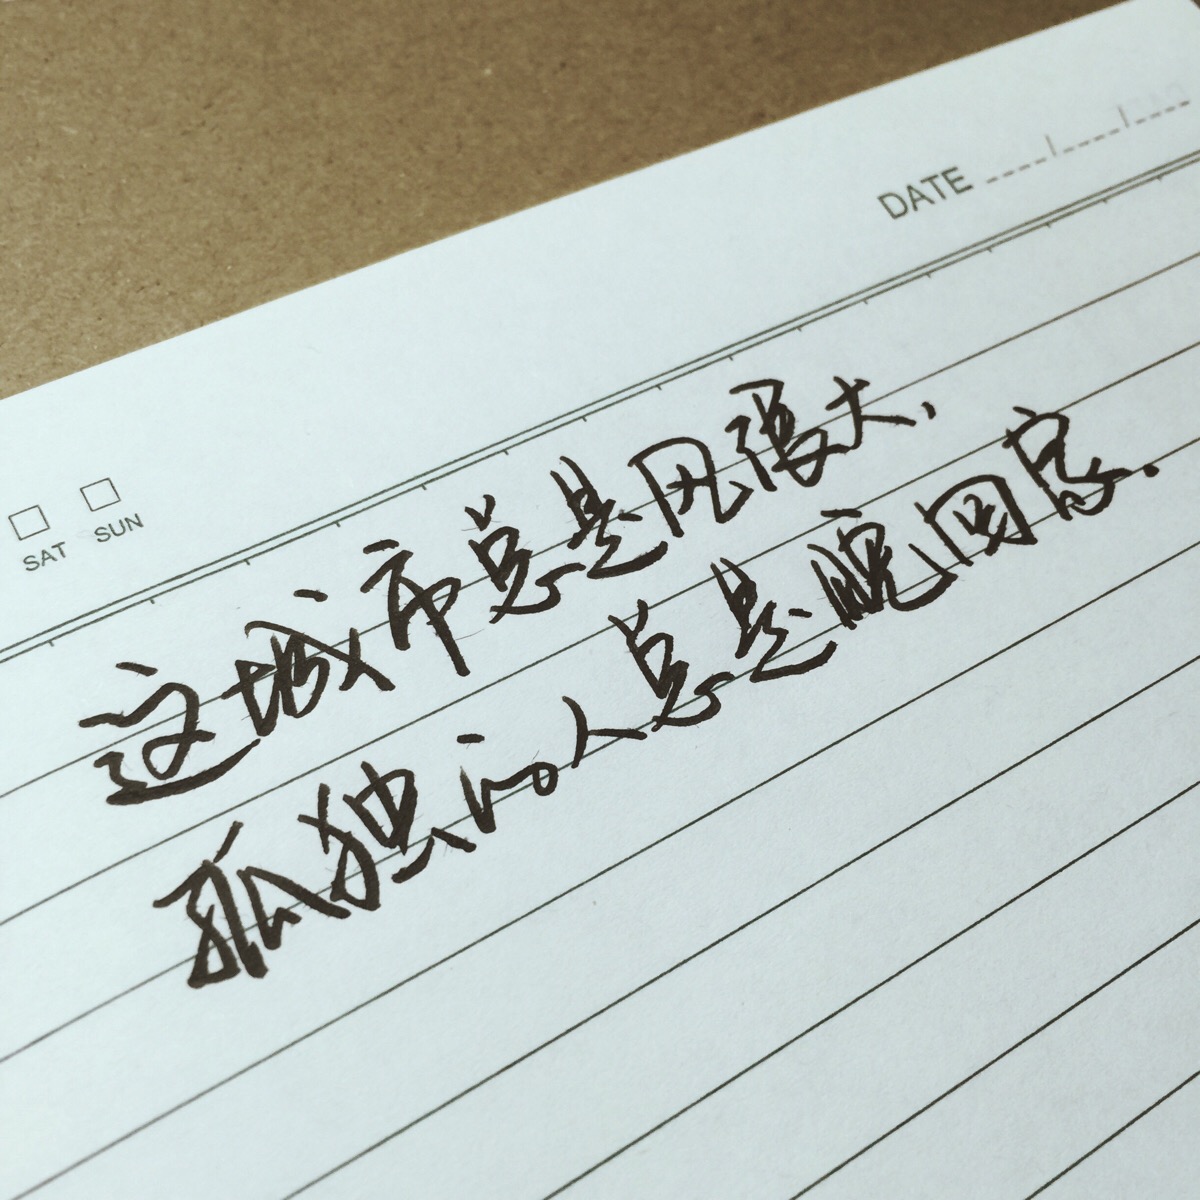 DATE
SAT SUN
这城市总是风很大，
孤独的人总是晚回家.